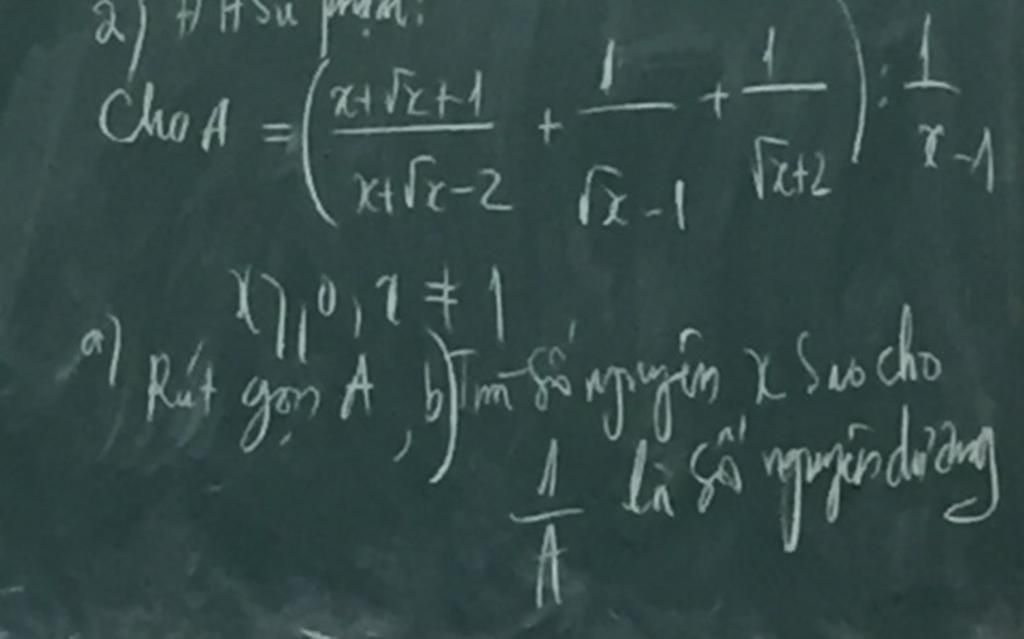 2) Sư phạm:
Cho A = ( \frac{x+√x+1}{x+√x-2} + \frac{1}{√x-1} + \frac{1}{√x+2} ) : \frac{1}{x-1}
x ≥ 0, x ≠ 1
a) Rút gọn A, b) Tìm số nguyên x sao cho
\frac{1}{A} là số nguyên dương